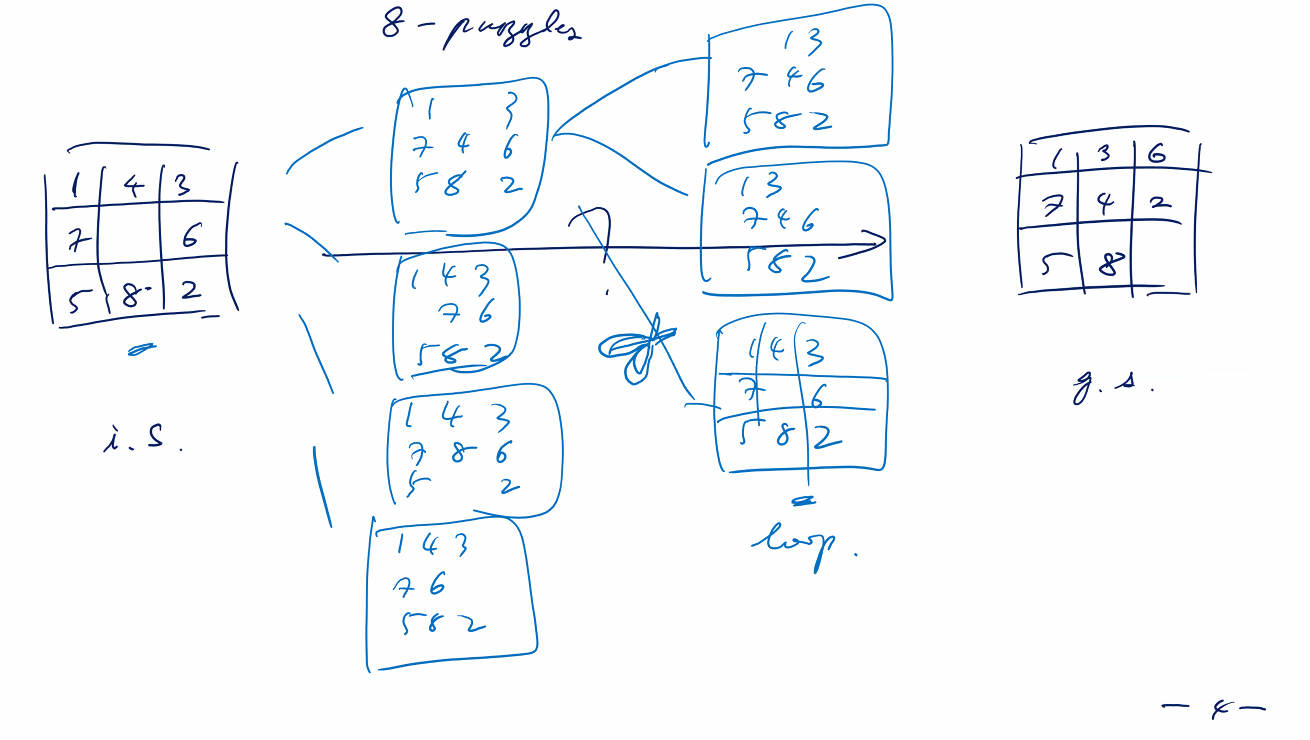 8 - puzzles
1 4 3
7 6
5 8 2
i. s.
1 3
7 4 6
5 8 2
1 4 3
7 6
5 8 2
1 4 3
7 8 6
5 2
1 4 3
7 6
5 8 2
?
1 3
7 4 6
5 8 2
1 3
7 4 6
5 8 2
1 4 3
7 6
5 8 2
loop.
1 3 6
7 4 2
5 8
g. s.
- 4 -